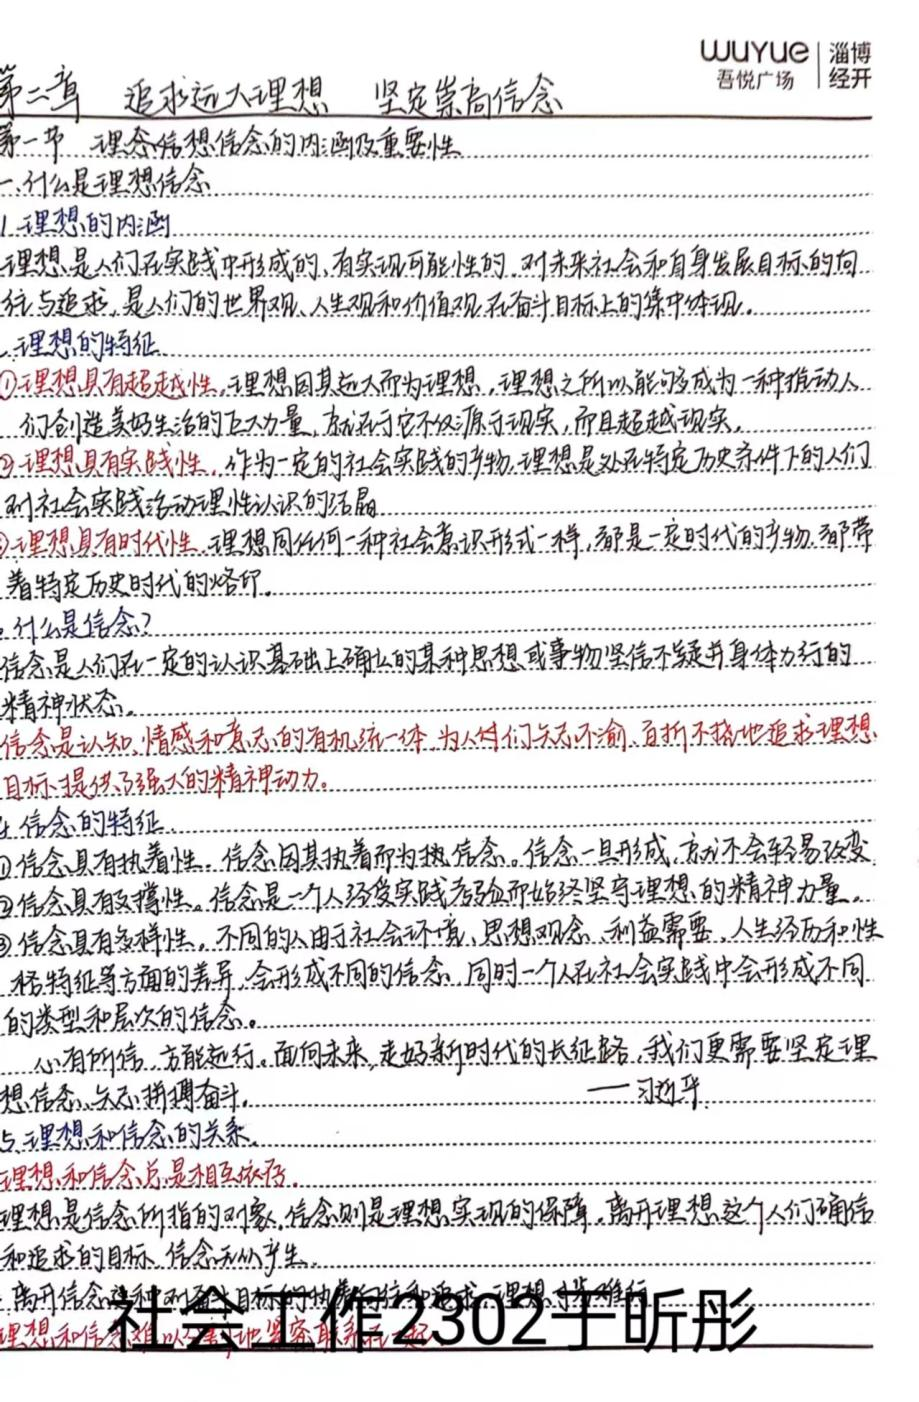 wuyue 吾悦广场 淄博经开
第二章 追求远大理想 坚定崇高信念
第一节 理念信想信念的内涵及重要性
一.什么是理想信念
1.理想的内涵
理想是人们在实践中形成的、有实现可能性的、对未来社会和自身发展目标的向
往与追求,是人们的世界观、人生观和价值观在奋斗目标上的集中体现。
理想的特征
①理想具有超越性,理想因其远大而为理想,理想之所以能够成为一种推动人
们创造美好生活的巨大力量,就在于它不仅源于现实,而且超越现实。
②理想具有实践性,作为一定的社会实践的产物,理想是处在特定历史条件下的人们
对社会实践活动理性认识的结晶
③理想具有时代性,理想同任何一种社会意识形式一样,都是一定时代的产物,都带
着特定历史时代的烙印。
什么是信念?
信念是人们在一定的认识基础上确立的某种思想或事物坚信不疑并身体力行的
精神状态。
信念是认知、情感和意志的有机统一体,为人们矢志不渝、百折不挠地追求理想
目标提供了强大的精神动力。
4.信念的特征
①信念具有执着性。信念因其执着而为信念。信念一旦形成,就不会轻易改变
②信念具有支撑性。信念是一个人经受实践考验而始终坚守理想的精神力量。
③信念具有多样性。不同的人由于社会环境、思想观念、利益需要、人生经历和性
格特征等方面的差异,会形成不同的信念,同时一个人在社会实践中会形成不同
的类型和层次的信念。
心有所信,方能远行。面向未来,走好新时代的长征路,我们更需要坚定理
想信念、矢志拼搏奋斗。 ——习近平
5.理想和信念的关系
理想和信念总是相互依存。
理想是信念所指的对象,信念则是理想实现的保障。离开理想这个人们确信
和追求的目标,信念无从产生。
离开信念这种对奋斗目标的执着向往和追求,理想寸步难行
理想和信念难以分割地紧密联系在一起
社会工作2302于昕彤